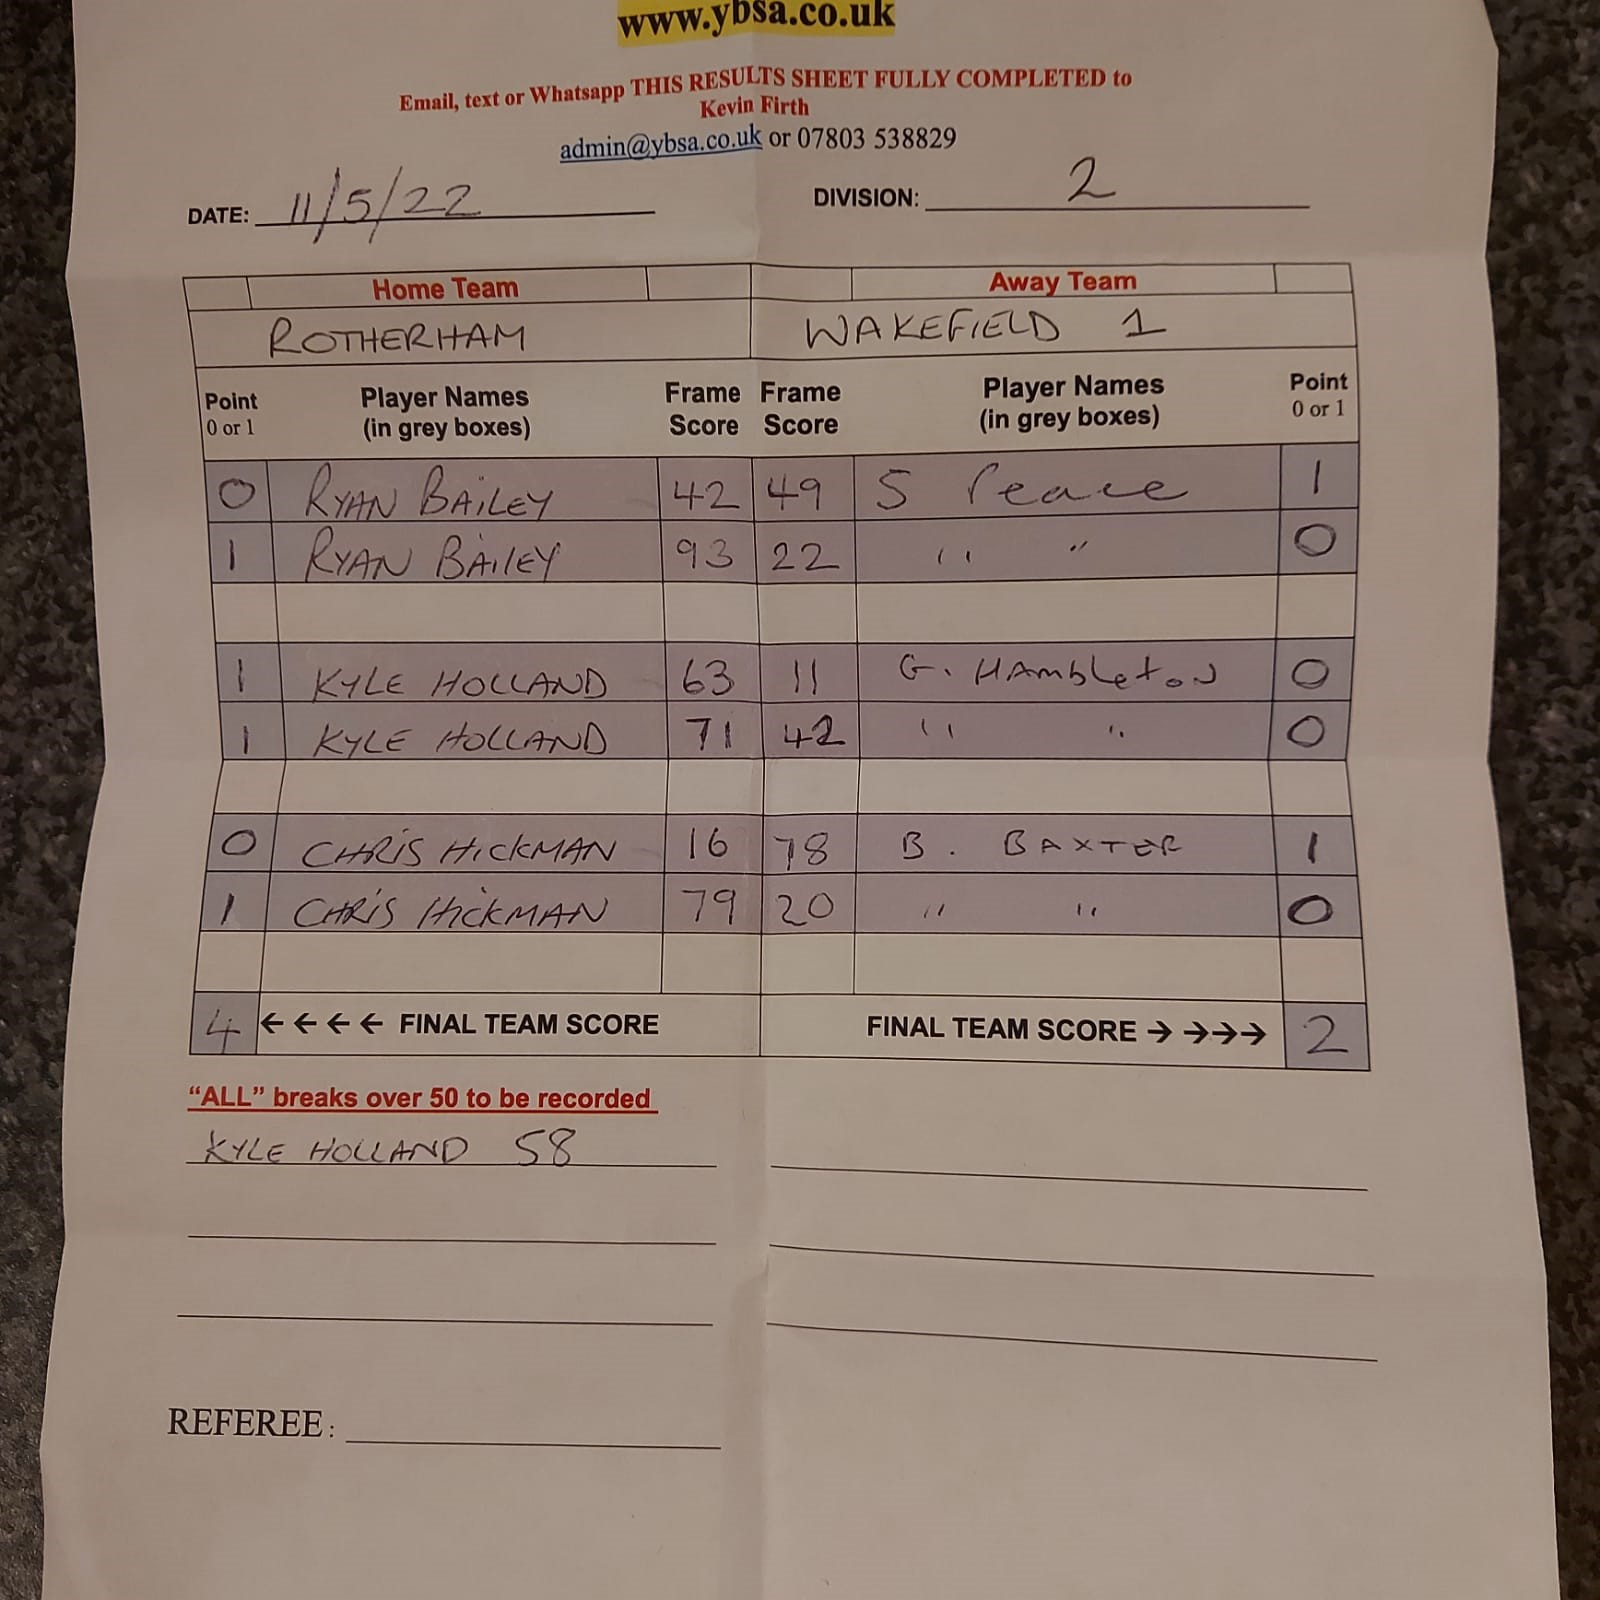 www.ybsa.co.uk
Email, text or Whatsapp THIS RESULTS SHEET FULLY COMPLETED to
Kevin Firth
admin@ybsa.co.uk or 07803 538829
DATE: 11/5/22 DIVISION: 2
Home Team Away Team
ROTHERHAM WAKEFIELD 1
Point Player Names Frame Frame Player Names Point
0 or 1 (in grey boxes) Score Score (in grey boxes) 0 or 1
0 RYAN BAILEY 42 49 S Peace 1
1 RYAN BAILEY 93 22 " " 0
1 KYLE HOLLAND 63 11 G. HAmbLeToN 0
1 KYLE HOLLAND 71 42 " " 0
0 CHRIS HICKMAN 16 78 B. BAXTER 1
1 CHRIS HICKMAN 79 20 " " 0
4 ← ← ← ← FINAL TEAM SCORE FINAL TEAM SCORE → → → → 2
“ALL” breaks over 50 to be recorded
KYLE HOLLAND 58
REFEREE: